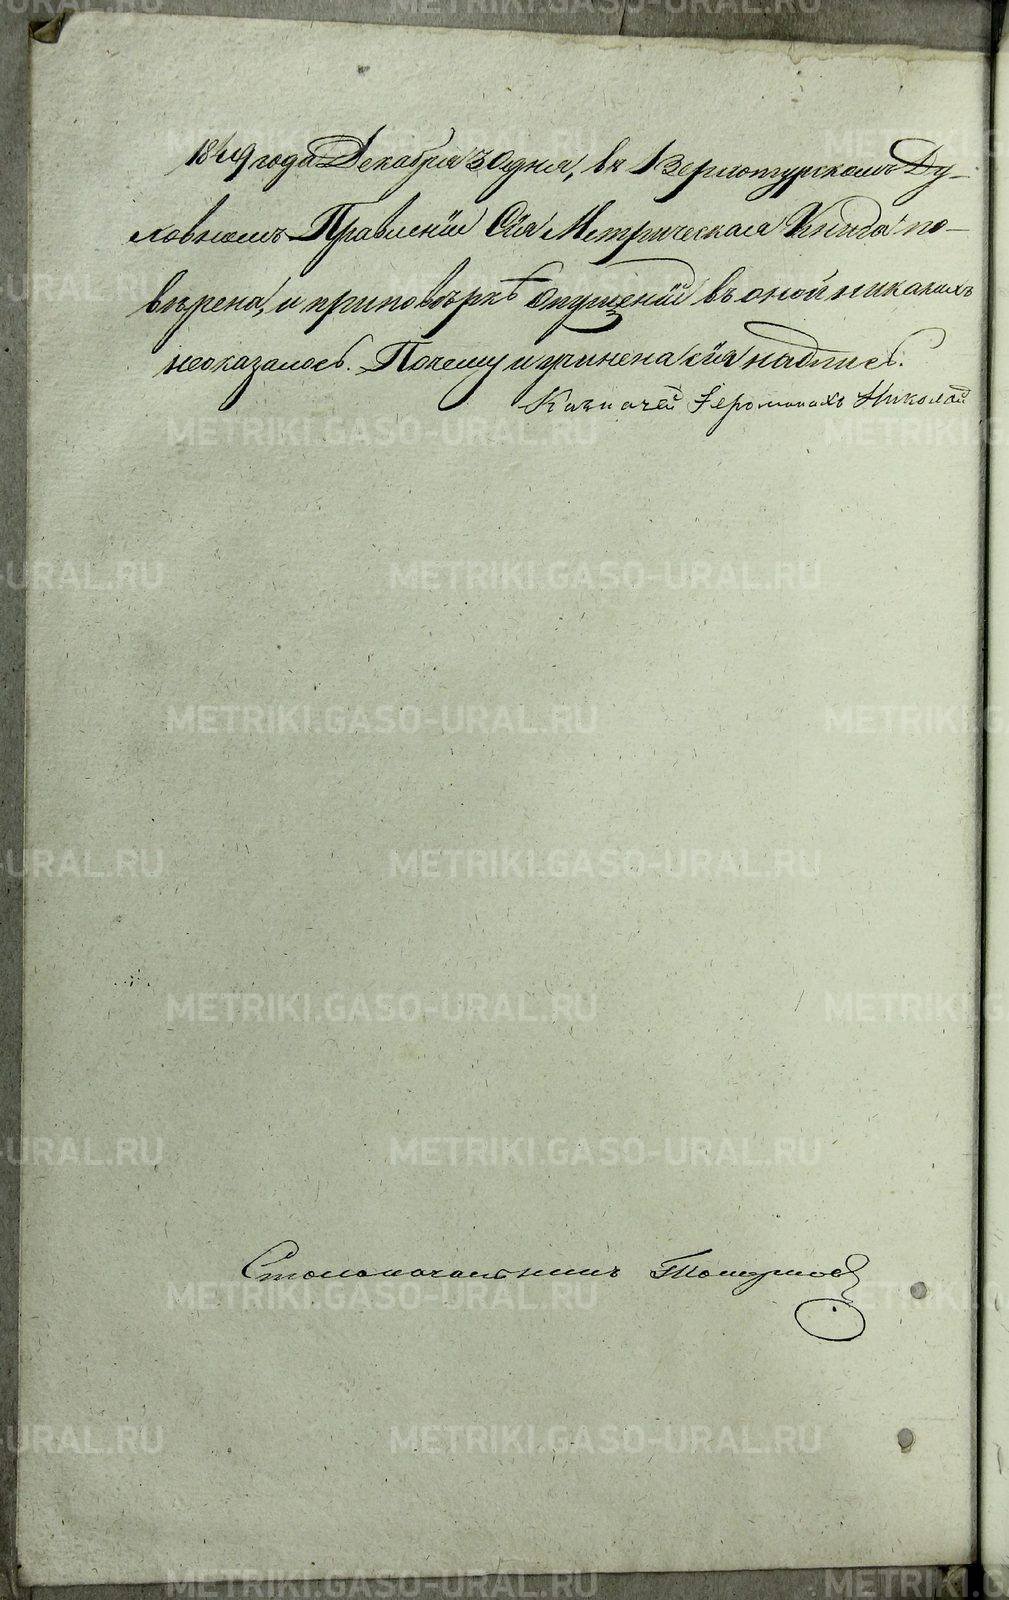 1849 года Декабря 30 дня, въ Верхотурскомъ Ду-
ховномъ Правленіи Сія Метрическая Книга по-
вѣрена, и приповѣркѣ Опущеній въ оной никакихъ
неоказалось. Почему и учинена сія надпись.
Казначей Іеромонахъ Николай
Столоначальникъ
METRIKI.GASO-URAL.RU